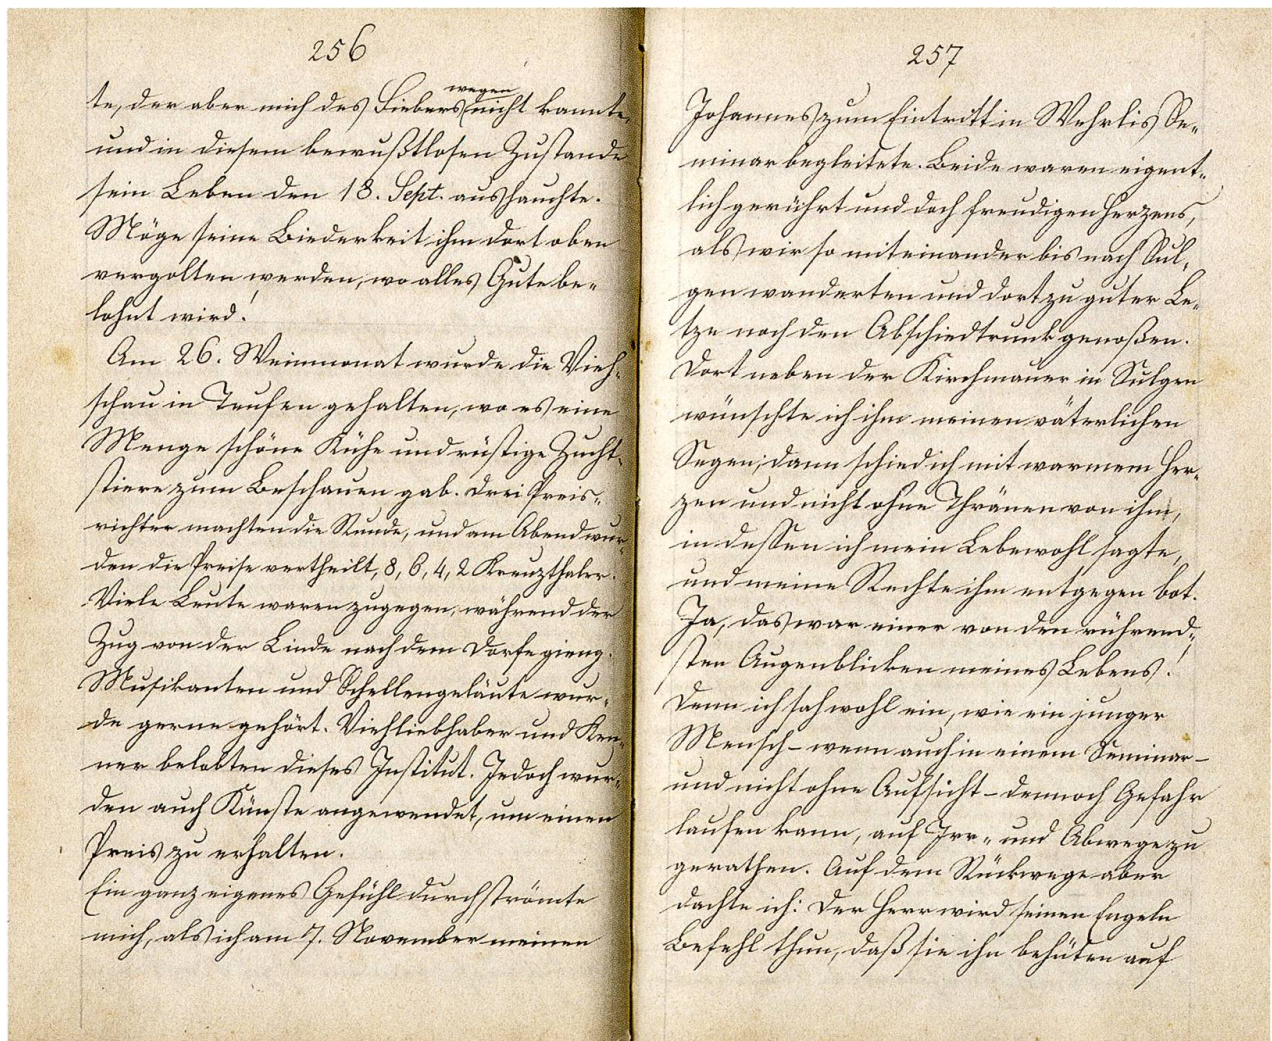 256
te, der aber mich des Fiebers wegen nicht kannte,
und in diesem bewußtlosen Zustande
sein Leben den 18. Sept. aushauchte.
Möge seine Biederkeit ihm dort oben
vergolten werden, wo alles Gute be-
lohnt wird!
Am 26. Weinmonat wurde die Vieh-
schau in Teufen gehalten, wo es eine
Menge schöne Kühe und rüstige Zucht-
stiere zum Beschauen gab. Drei Preis-
richter machten die Runde, und am Abend wur-
den die Preise vertheilt, 8, 6, 4, 2 Kreuzthaler.
Viele Leute waren zugegen, während der
Zug von der Linde nach dem Dorfe gieng.
Musikanten und Schellengeläute wur-
de gerne gehört. Viehliebhaber und Ken-
ner belobten dieses Institut. Jedoch wur-
den auch Künste angewendet, um einen
Preis zu erhalten.
Ein ganz eigenes Gefühl durchströmte
mich, als ich am 7. November meinen
257
Johannes zum Eintritt in Wehrlis Se-
minar begleitete. Beide waren eigent-
lich gerührt und doch freudigen Herzens,
als wir so miteinander bis nach Sul-
gen wanderten und dort zu guter Le-
tze noch den Abschiedtrunk genoßen.
Dort neben der Kirchmauer in Sulgen
wünschte ich ihm meinen väterlichen
Segen; dann schied ich mit warmem Her-
zen und nicht ohne Thränen von ihm,
in dessen ich mein Lebewohl sagte,
und meine Rechte ihm entgegen bot.
Ja, das war einer von den rührend-
sten Augenblicken meines Lebens!
Denn ich sah wohl ein, wie ein junger
Mensch – wenn auch in einem Seminar –
und nicht ohne Aufsicht – dennoch Gefahr
laufen kann, auf Irr- und Abwege zu
gerathen. Auf dem Rückwege aber
dachte ich: Der Herr wird seinen Engeln
Befehl thun, daß sie ihn behüten auf